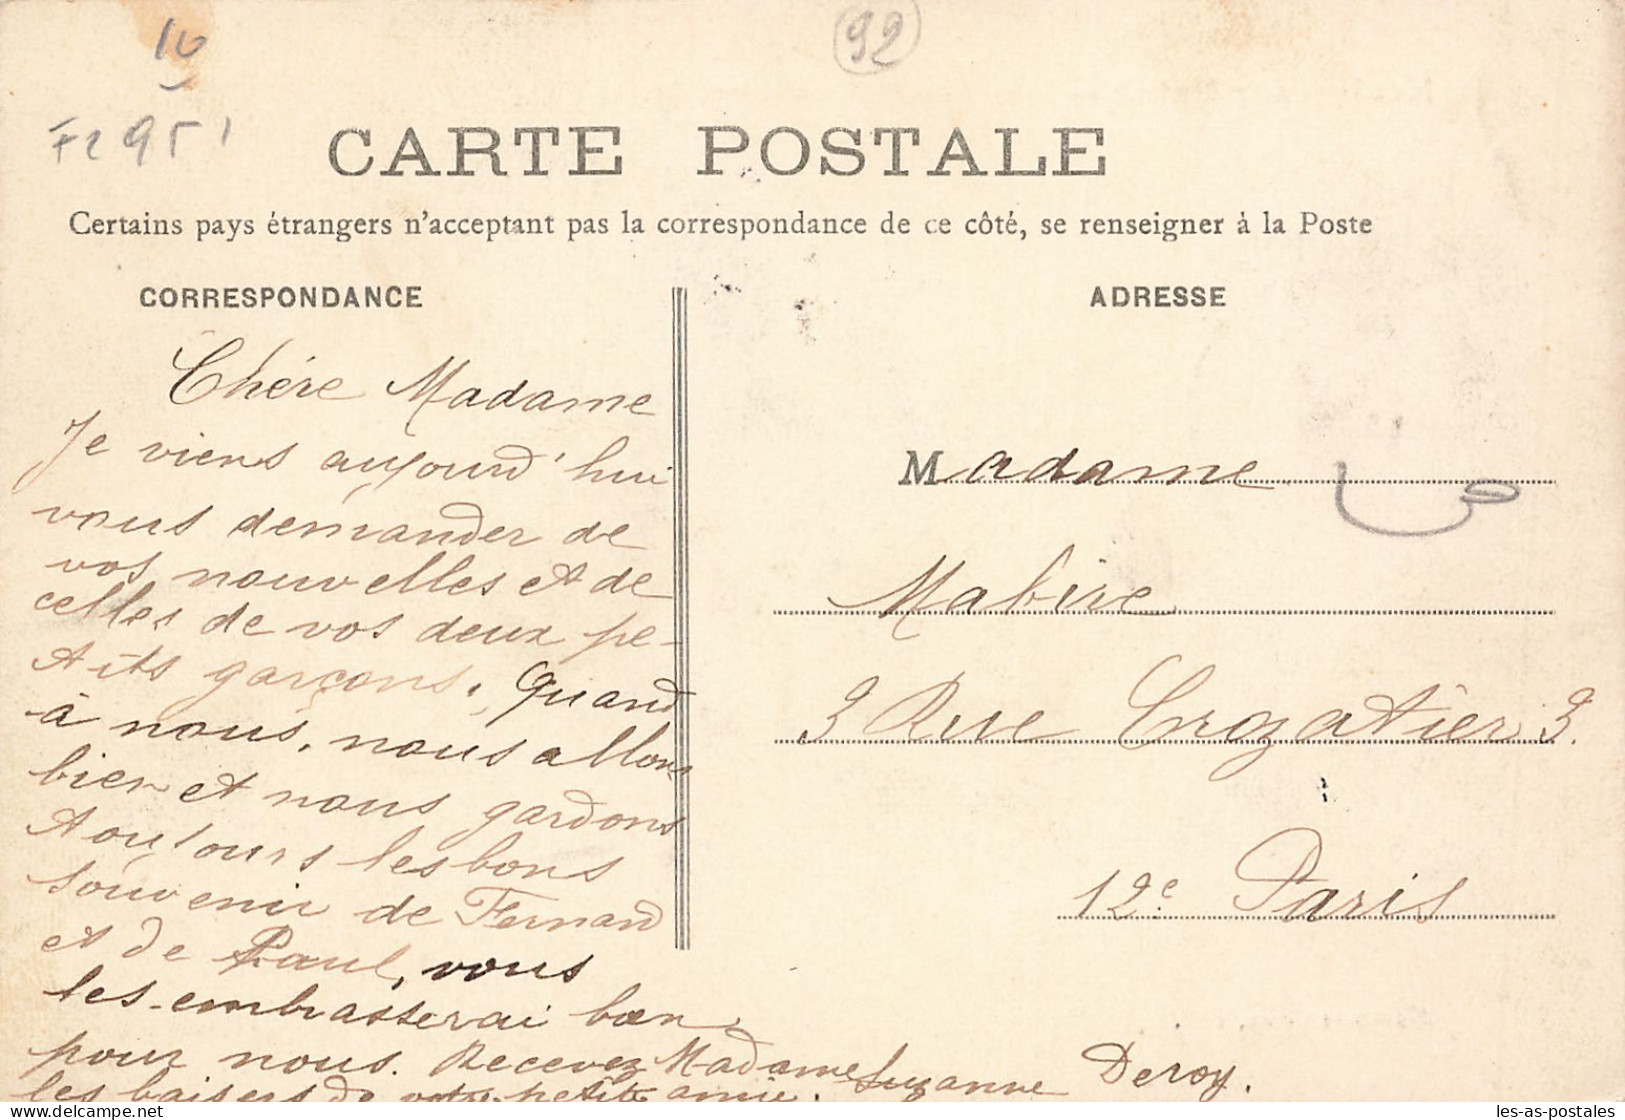 10
92
F2951
CARTE POSTALE
Certains pays étrangers n'acceptant pas la correspondance de ce côté, se renseigner à la Poste
CORRESPONDANCE
Chére Madame
Je viens aujourd'hui
vous demander de
vos nouvelles et de
celles de vos deux pe-
tits garçons. Quand
à nous, nous allons
bien et nous gardons
toujours les bons
souvenir de Fernand
et de Paul, vous
les embrasserai bien
pour nous. Recevez Madame
les baisers de votre petite amie. Suzanne Deroy.
ADRESSE
Madame
Mabire
3 Rue Crozatier 3.
12e Paris
les-as-postales